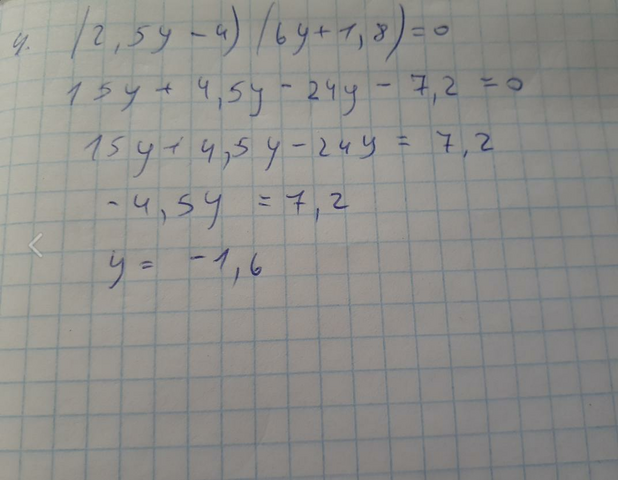 4. (2,5y-4)(6y+1,8)=0
15y+4,5y-24y-7,2=0
15y+4,5y-24y=7,2
-4,5y=7,2
y=-1,6